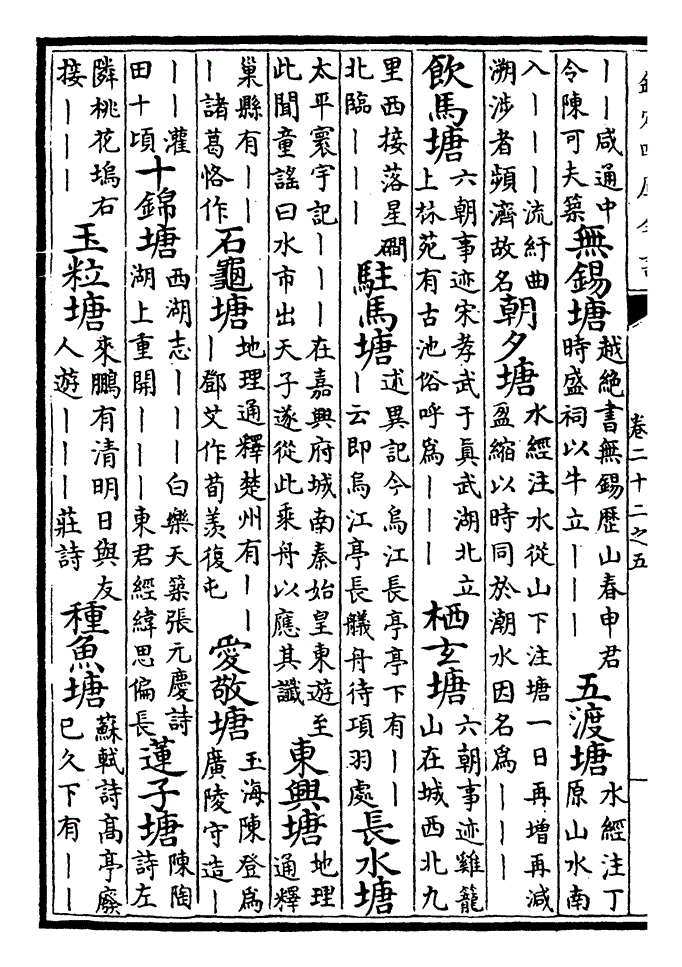 欽定四庫全書
卷二十二之五
｜｜咸通中令陳可夫築無錫塘越絶書無錫歷山春申君時盛祠以牛立｜｜｜五渡塘水經注丁原山水南
入｜｜｜流紆曲溯涉者頻濟故名朝夕塘水經注水從山下注塘一日再增再減盈縮以時同於潮水因名爲｜｜｜
飲馬塘六朝事迹宋孝武于眞武湖北立上林苑有古池俗呼爲｜｜｜栖玄塘六朝事迹雞籠山在城西北九
里西接落星磵北臨｜｜｜駐馬塘述異記今烏江長亭亭下有｜｜｜云即烏江亭長艤舟待項羽處長水塘
太平寰宇記｜｜｜在嘉興府城南秦始皇東遊至此聞童謠曰水市出天子遂從此乘舟以應其讖東興塘地理通釋
巢縣有｜｜｜諸葛恪作石龜塘地理通釋楚州有｜｜｜鄧艾作荀羨復屯愛敬塘玉海陳登爲廣陵守造｜
｜｜灌田十頃十錦塘西湖志｜｜｜白樂天築張元慶詩湖上重開｜｜｜東君經緯思偏長蓮子塘陳陶詩左
隣桃花塢右接｜｜｜玉粒塘來鵬有清明日與友人遊｜｜｜莊詩種魚塘蘇軾詩高亭廢已久下有｜｜